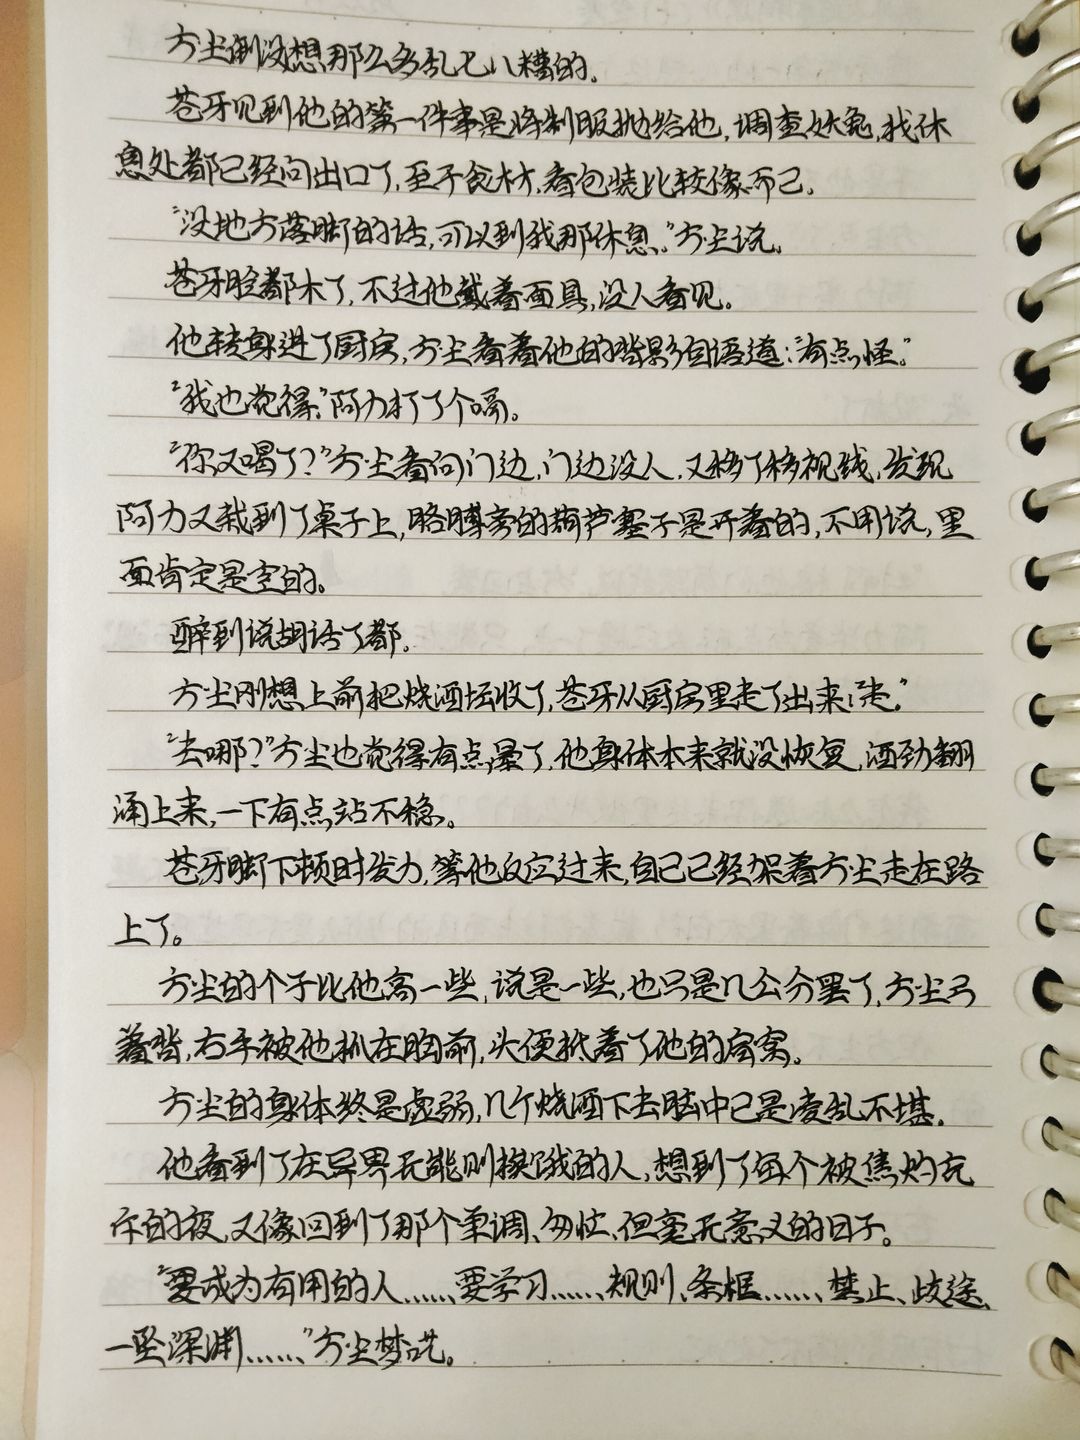 方尘倒没想那么多乱七八糟的。
苍牙见到他的第一件事是将制服抛给他,调查妖兔,找休
息处都已经问出口了,至于食材,看包装比较像而已。
“没地方落脚的话,可以到我那休息。”方尘说。
苍牙脸都木了,不过他戴着面具,没人看见。
他转身进了厨房,方尘看着他的背影自语道:“有点怪。”
“我也觉得。”阿力打了个嗝。
“你又喝了?”方尘看向门边,门边没人,又移了移视线,发现
阿力又栽到了桌子上,胳膊旁的葫芦塞子是开着的,不用说,里
面肯定是空的。
醉到说胡话了都。
方尘刚想上前把烧酒坛收了,苍牙从厨房里走了出来:“走。”
“去哪?”方尘也觉得有点晕了,他身体本来就没恢复,酒劲翻
涌上来,一下有点站不稳。
苍牙脚下顿时发力,等他反应过来,自己已经架着方尘走在路
上了。
方尘的个子比他高一些,说是一些,也只是几公分罢了,方尘弓
着背,右手被他抓在胸前,头便抵着了他的肩窝。
方尘的身体终是虚弱,几个烧酒下去脑中已是凌乱不堪。
他看到了在异界无能则挨饿的人,想到了每个被焦灼充
斥的夜,又像回到了那个单调、匆忙、但毫无意义的日子。
“要成为有用的人……、要学习……、规则、条框……、禁止、歧途、
一坠深渊……”方尘梦呓。